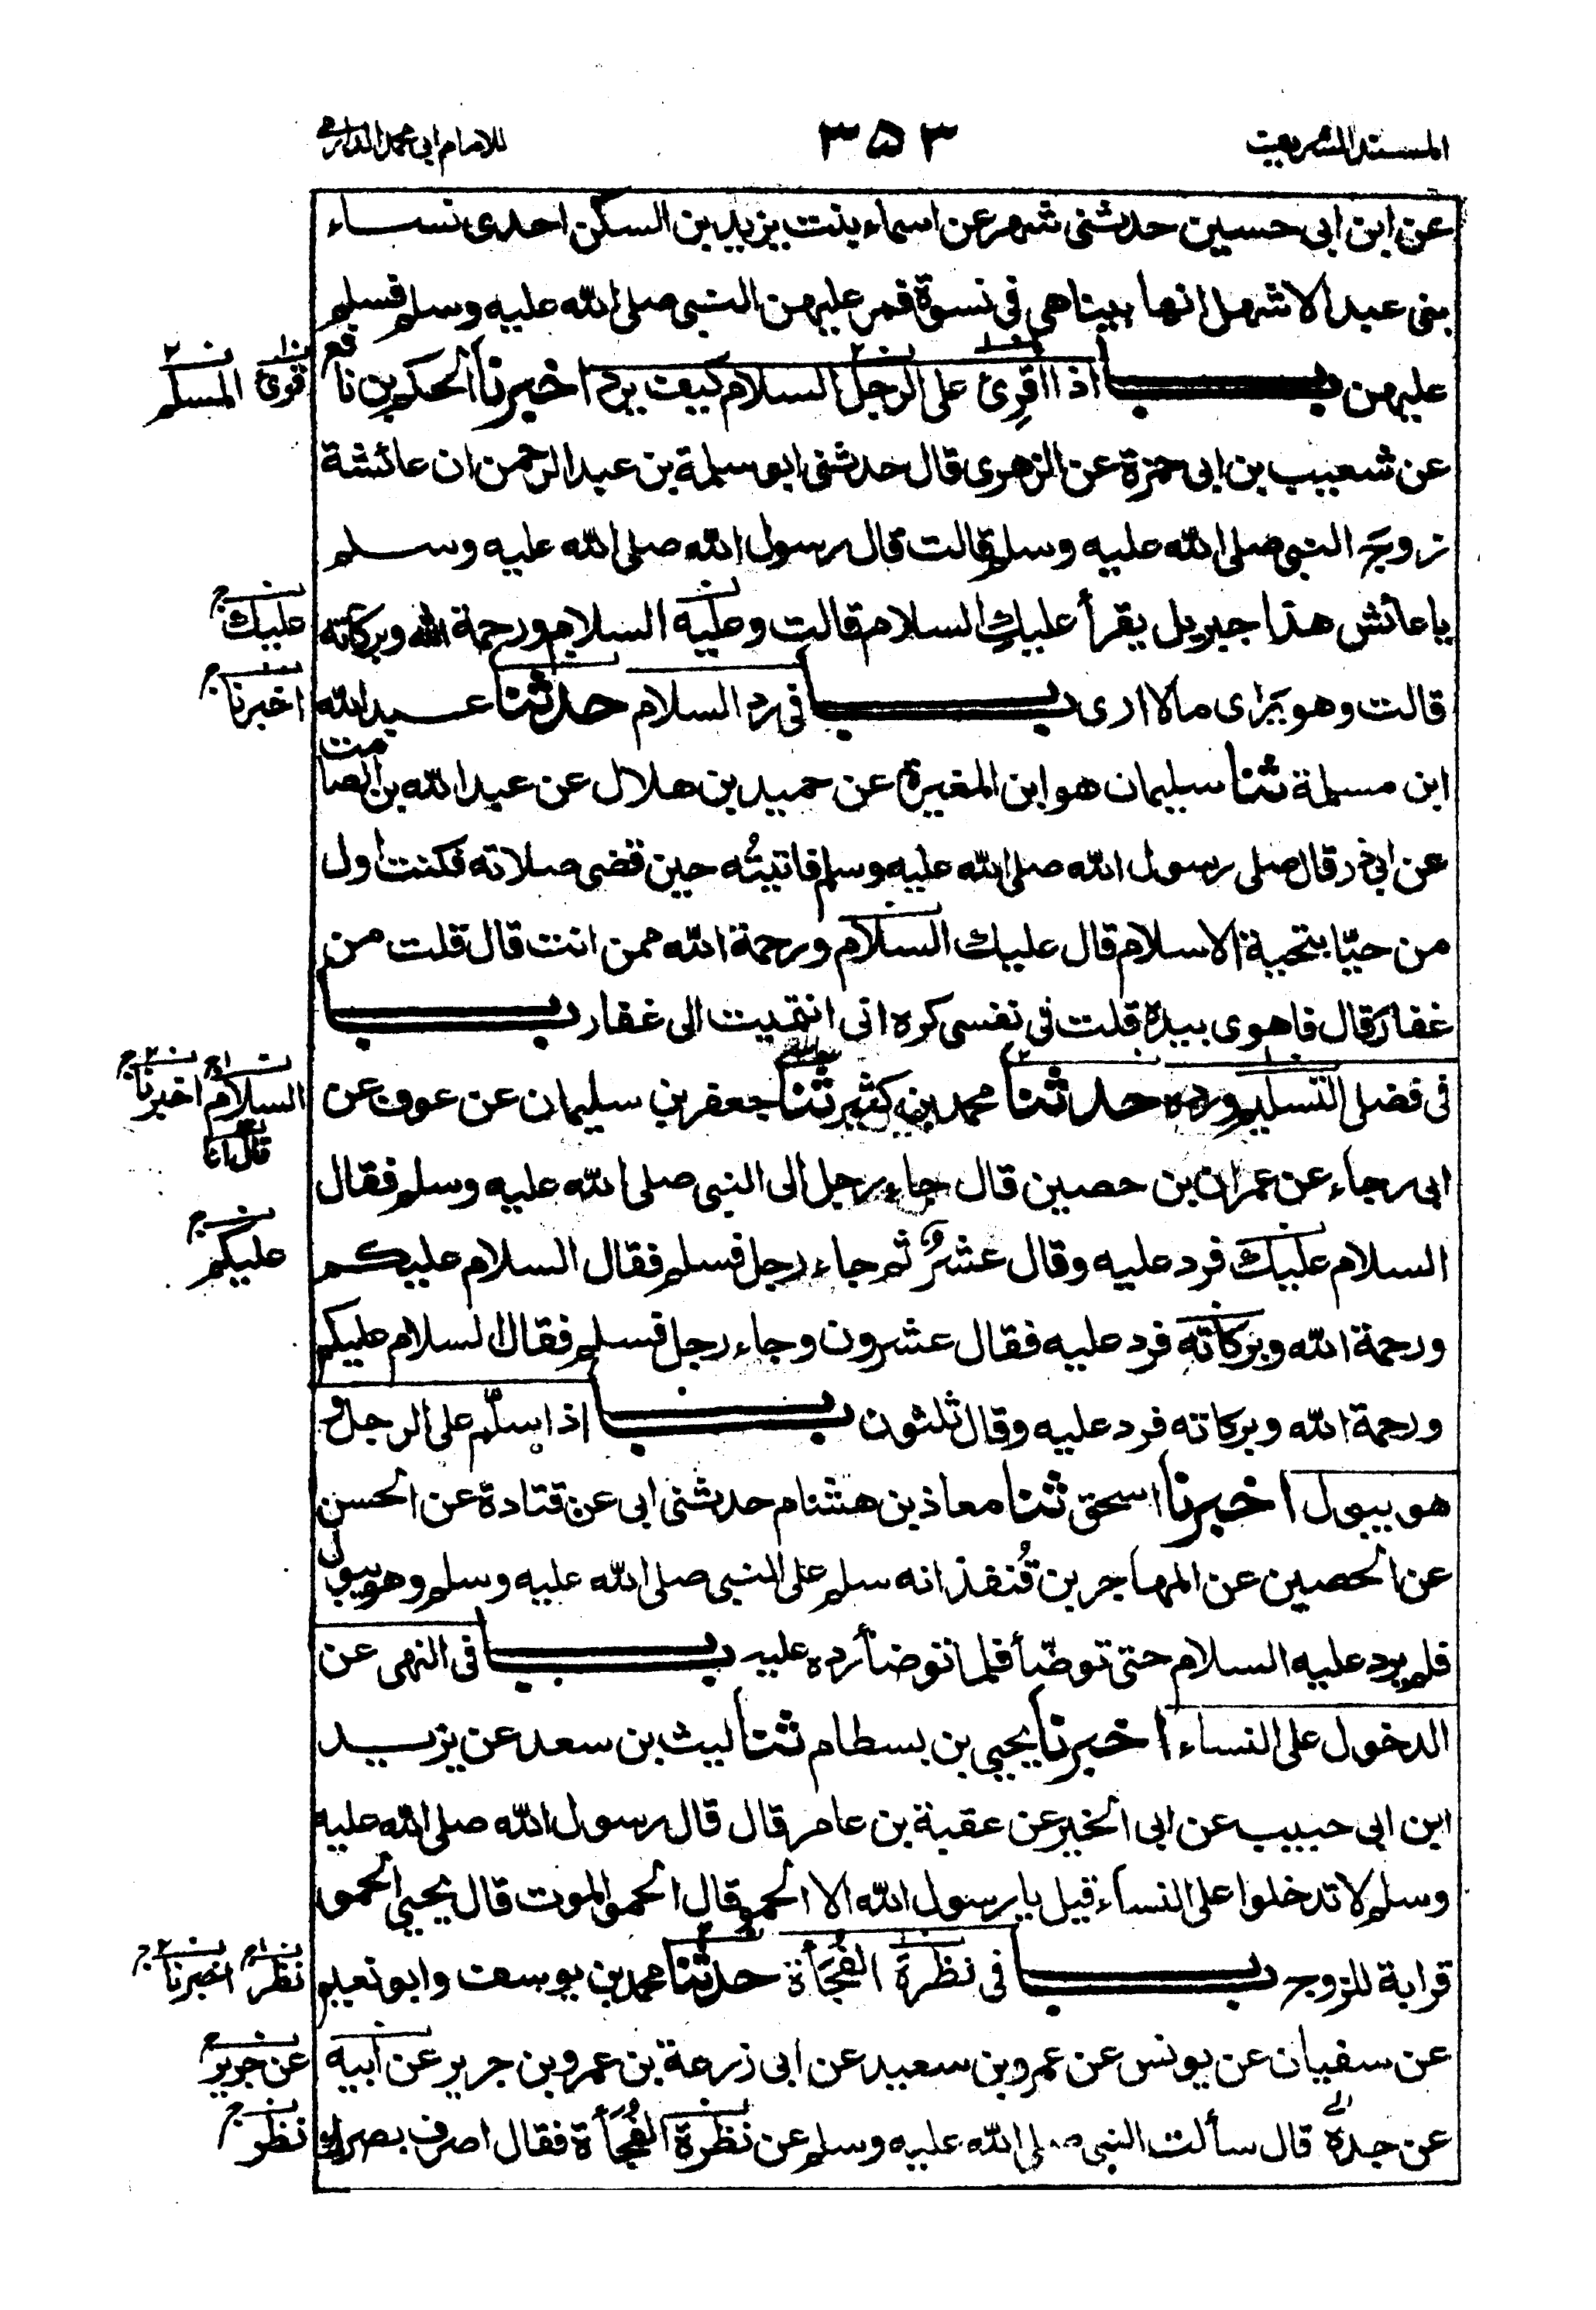 المسند الشريف
٣٥٣
للامام ابي محمد الدارمي
عن ابن ابى حسين حدثنى شهر عن اسماء بنت يزيد بن السكن احدى نساء
بنى عبد الاشهل انها بينا هى فى نسوة فمر عليهن النبى صلى الله عليه وسلم فسلم
عليهن باب اذا اقرئ على الرجل السلام كيف يرد اخبرنا الحكم بن نافع
قرئ المسلم
عن شعيب بن ابى حمزة عن الزهرى قال حدثنى ابو سلمة بن عبد الرحمن ان عائشة
زوج النبى صلى الله عليه وسلم قالت قال رسول الله صلى الله عليه وسلم
يا عائش هذا جبريل يقرأ عليكِ السلام قالت وعليه السلام ورحمة الله وبركاته
عليك
قالت وهو يَرٰى ما لا ارى باب فى رد السلام حدثنا عبد الله
اخبرنا
ابن مسلمة ثنا سليمان هو ابن المغيرة عن حميد بن هلال عن عبد الله بن الصامت
عن ابى ذر قال صلى رسول الله صلى الله عليه وسلم فاتيتُه حين قضى صلاته فكنت اول
من حيّا بتحية الاسلام قال عليك السلام ورحمة الله ممن انت قال قلت من
غفار قال فاهوى بيده قلت فى نفسى كره انى انتميت الى غفار باب
فى فضل التسليم ورده حدثنا محمد بن كثير ثنا جعفر بن سليمان عن عوف عن
السلام اخبرنا
قال انا
ابى رجاء عن عمران بن حصين قال جاء رجل الى النبى صلى الله عليه وسلم فقال
السلام عليك فرد عليه وقال عشرٌ ثم جاء رجل فسلم فقال السلام عليكم
عليكم
ورحمة الله وبركاته فرد عليه فقال عشرون وجاء رجل فسلم فقال السلام عليكم
ورحمة الله وبركاته فرد عليه وقال ثلثون باب اذا سلّم على الرجل و
هو يبول اخبرنا اسحق ثنا معاذ بن هشام حدثنى ابى عن قتادة عن الحسن
عن الحصين عن المهاجر بن قُنفذ انه سلم على النبى صلى الله عليه وسلم وهو يبول
فلم يرد عليه السلام حتى توضّأ فلما توضأ رده عليه باب فى النهى عن
الدخول على النساء اخبرنا يحيى بن بسطام ثنا ليث بن سعد عن يزيد
ابن ابى حبيب عن ابى الخير عن عقبة بن عامر قال قال رسول الله صلى الله عليه
وسلم لا تدخلوا على النساء قيل يا رسول الله الا الحمو قال الحمو الموت قال يحيى الحمو
قرابة للزوج باب فى نظرة الفُجَأة حدثنا محمد بن يوسف وابو نعيم
نظر اخبرنا
عن سفيان عن يونس عن عمرو بن سعيد عن ابى زرعة بن عمرو بن جرير عن ابيه
عن جرير
عن جده قال سألت النبى صلى الله عليه وسلم عن نظرة الفُجَأة فقال اصرف بصرك
نظر